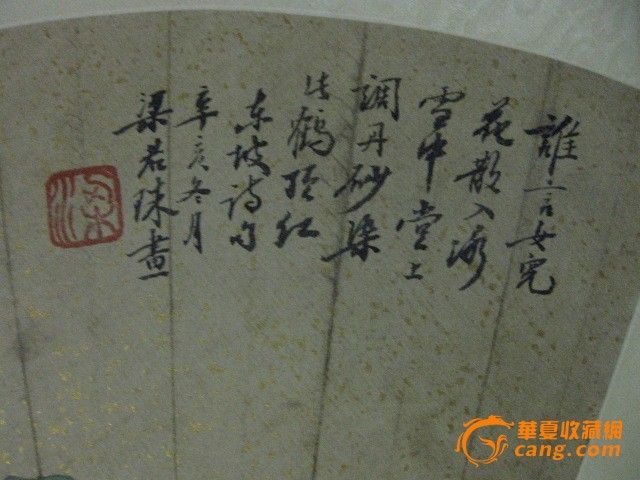 誰言女児
花散入冰
雪中堂上
調丹砂染
此鶴頂红
东坡詩句
辛亥冬月
梁若珠畫
梁
華夏收藏網
cang.com